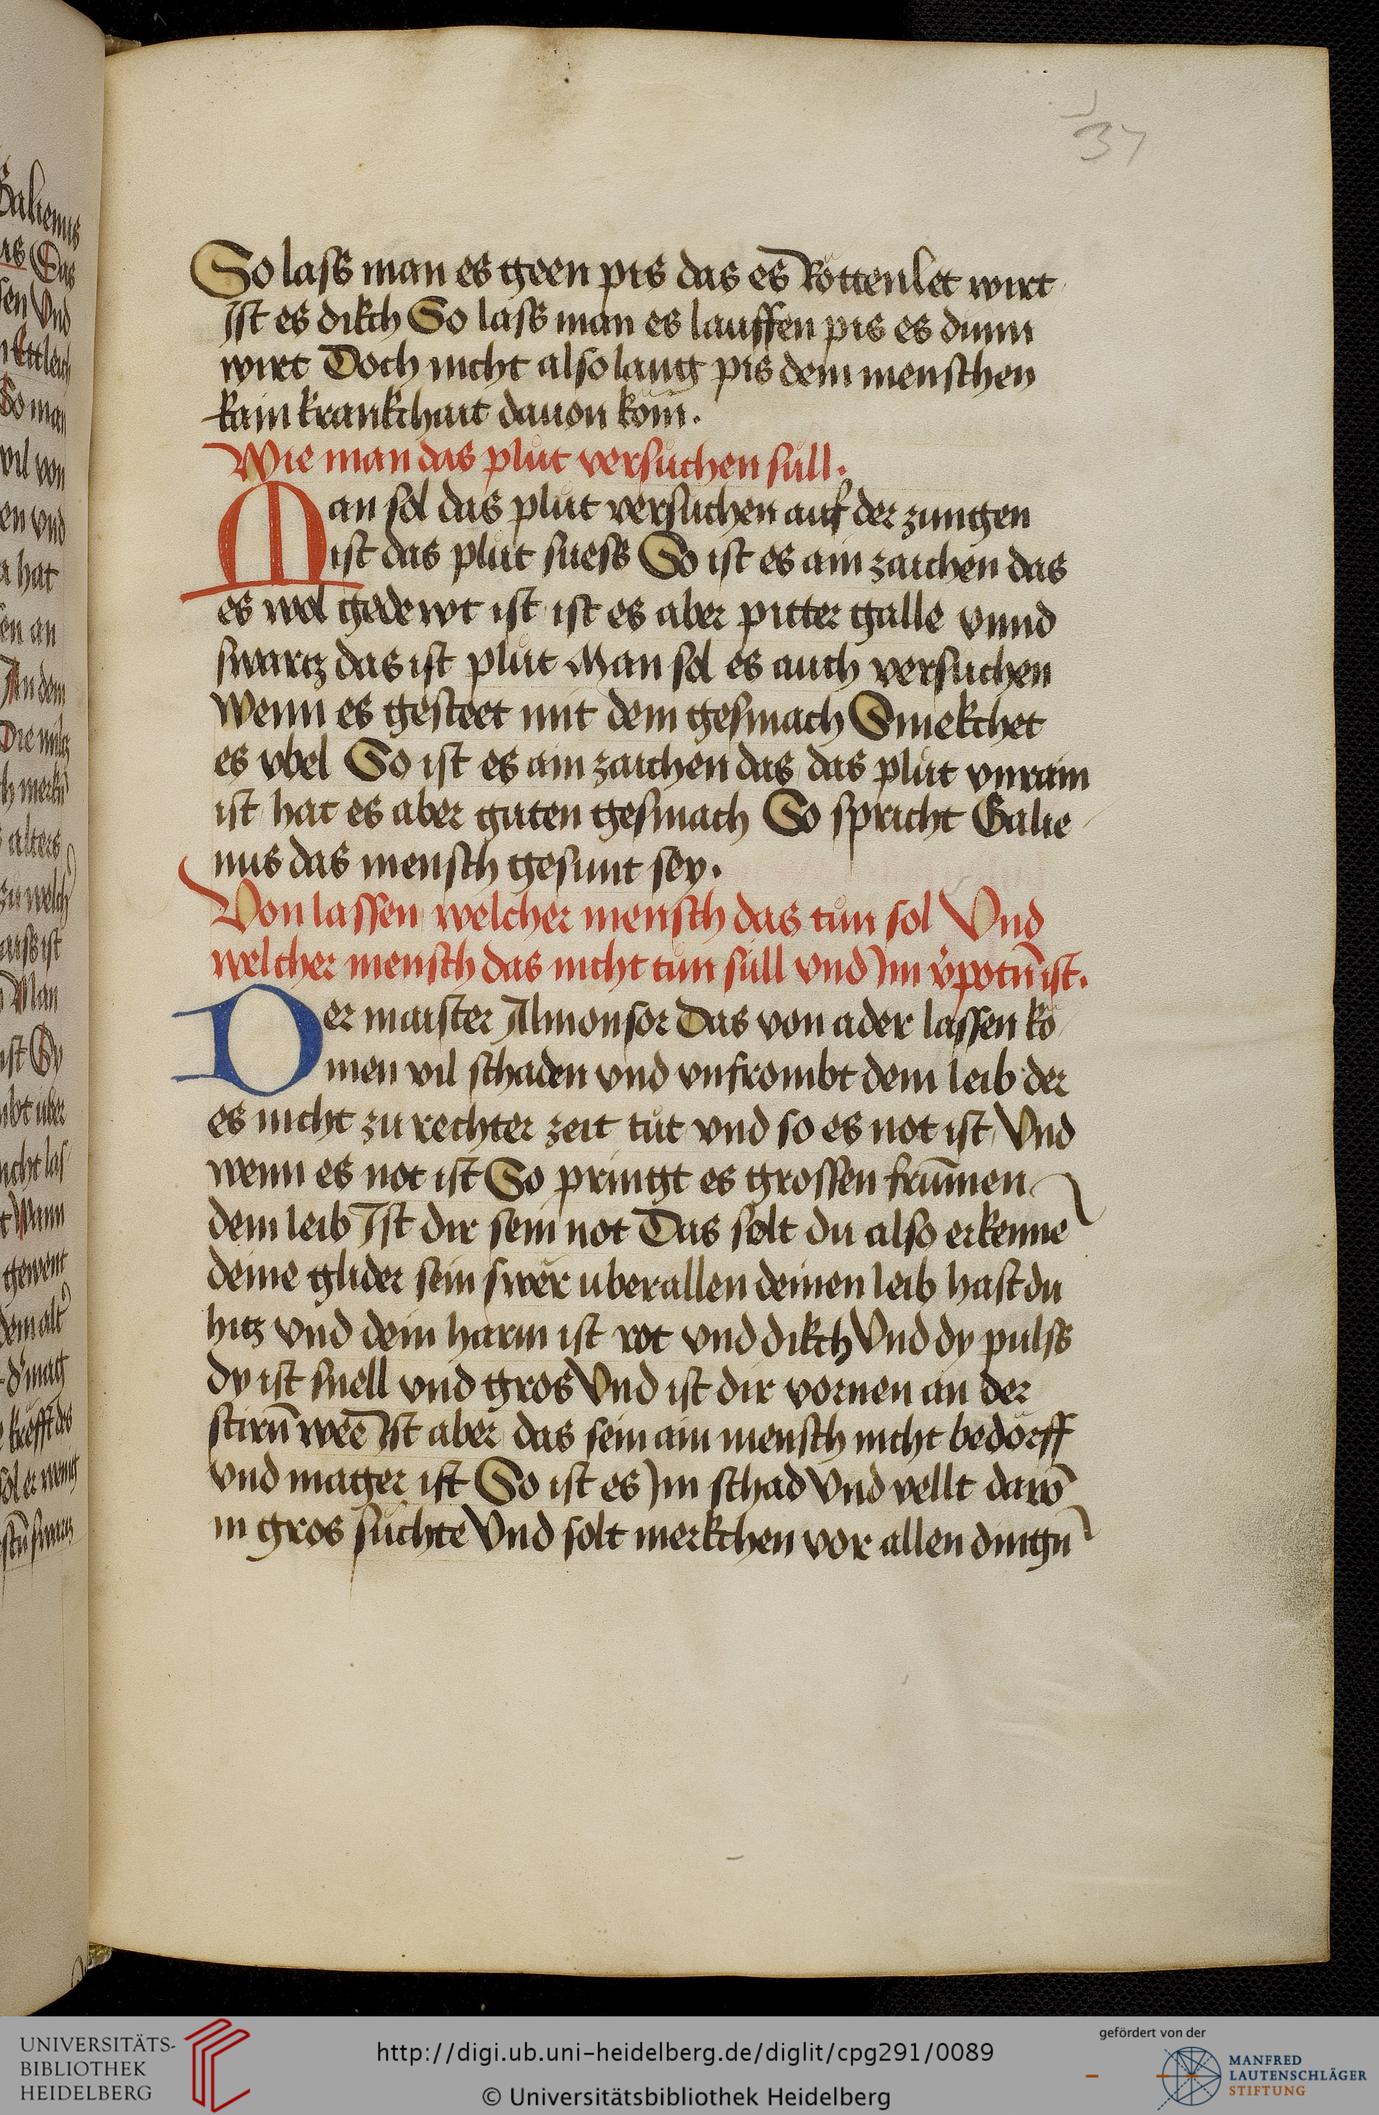 37
So lass man es geen pis das es Rottenlet wirt
Ist es dikch So lass man es lauffen pis es dunn
wirt Doch nicht also lang pis dem menschen
kain krankchait dauon kom.
Wie man das plut versuchen sull.
Man sol das plůt versuchen auf der zungen
ist das plůt suess So ist es ain zaichen das
es wol gedewt ist ist es aber pitter galle vnnd
swartz das ist plůt Man sol es auch versuchen
wenn es gesteet mit dem gesmach Smekchet
es vbel So ist es ain zaichen das das plůt vnrain
ist hat es aber guten gesmach So spricht Galie
nus das mensch gesunt sey.
Von lassen welcher mensch das tůn sol Vnd
welcher mensch das nicht tun sull vnd Im v̈potn̄ ist.
Der maister Almonsor Das von ader lassen ko
men vil schaden vnd vnfrombt dem leib der
es nicht zu rechter zeit tůt vnd so es not ist Vnd
wenn es not ist So pringt es grossen frūmen
dem leib Ist dir sein not Das solt du also erkenne
deine glider sein swer uber allen deinen leib hast du
hitz vnd dein harm ist rot vnd dikch Vnd dy pulss
dy ist snell vnd gros Vnd ist dir vornen an der
stirn̄ wee Ist aber das sein ain mensch nicht bedorff
vnd mager ist So ist es Im schad Vnd vellt darō
in gros suchte Vnd solt merkchen vor allen dingn
UNIVERSITÄTS-
BIBLIOTHEK
HEIDELBERG
http://digi.ub.uni-heidelberg.de/diglit/cpg291/0089
© Universitätsbibliothek Heidelberg
gefördert von der
MANFRED
LAUTENSCHLÄGER
STIFTUNG